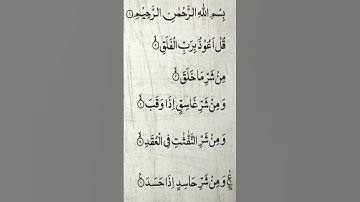 بِسْمِ اللّٰهِ الرَّحْمٰنِ الرَّحِيْمِ
قُلْ اَعُوْذُ بِرَبِّ الْفَلَقِ
مِنْ شَرِّ مَا خَلَقَ
وَمِنْ شَرِّ غَاسِقٍ اِذَا وَقَبَ
وَمِنْ شَرِّ النَّفّٰثٰتِ فِي الْعُقَدِ
وَمِنْ شَرِّ حَاسِدٍ اِذَا حَسَدَ